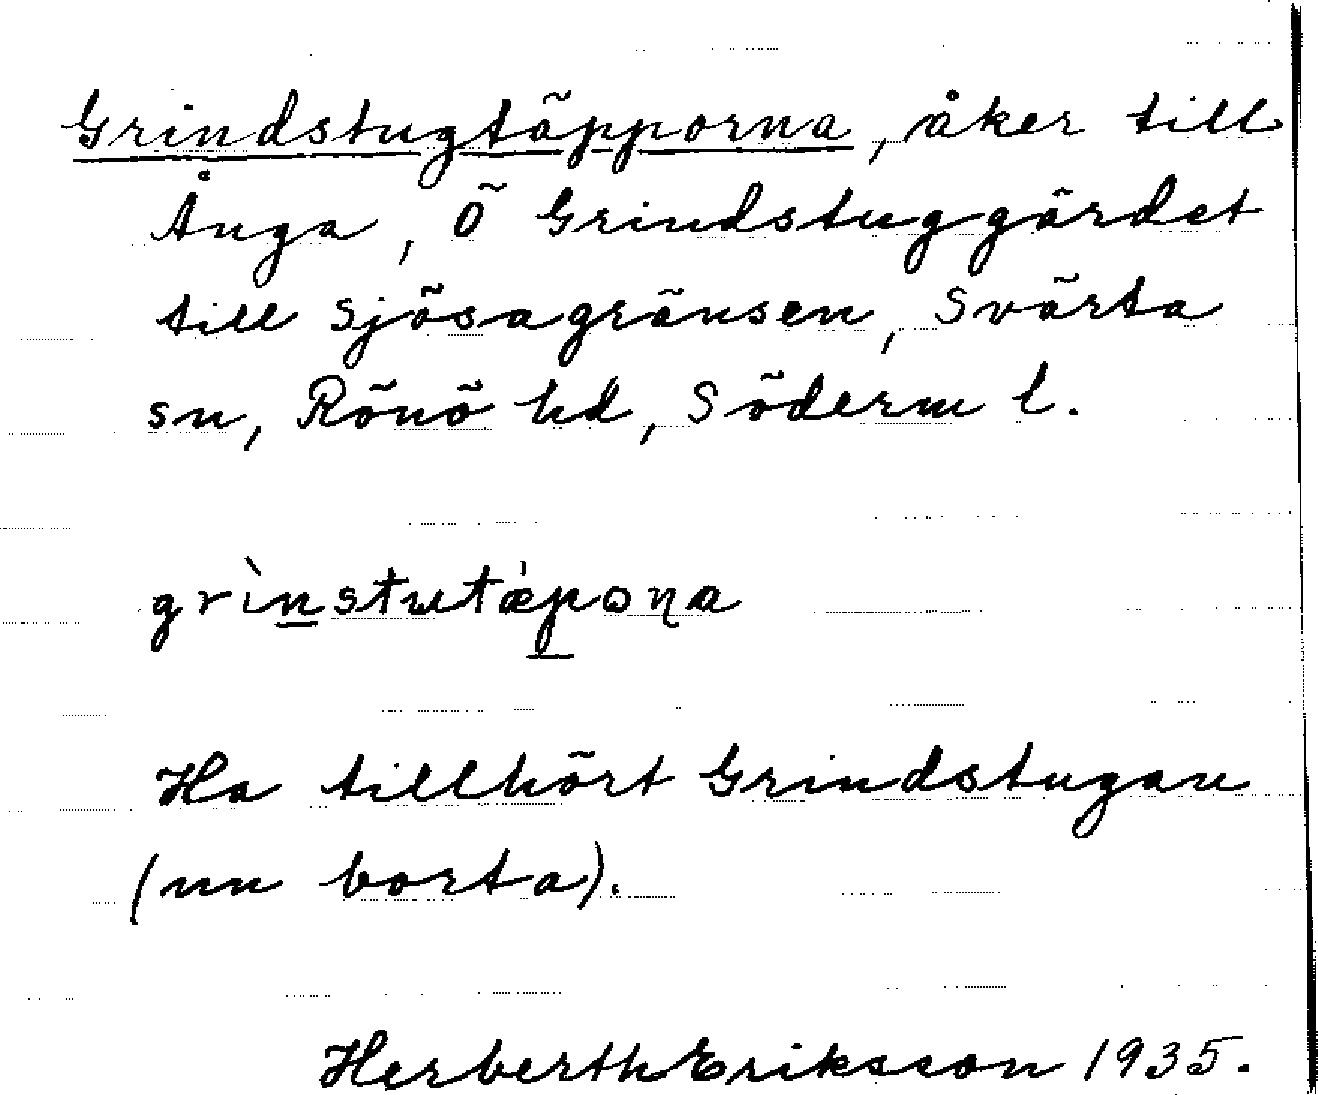 Grindstugtäpporna, åker till
Ånga, Ö Grindstuggärdet
till Sjösagränsen, Svärta
sn, Rönö hd, Söderm l.
grìnstutæ̀pona
Ha tillhört Grindstugan
(nu borta).
Herberth Eriksson 1935.